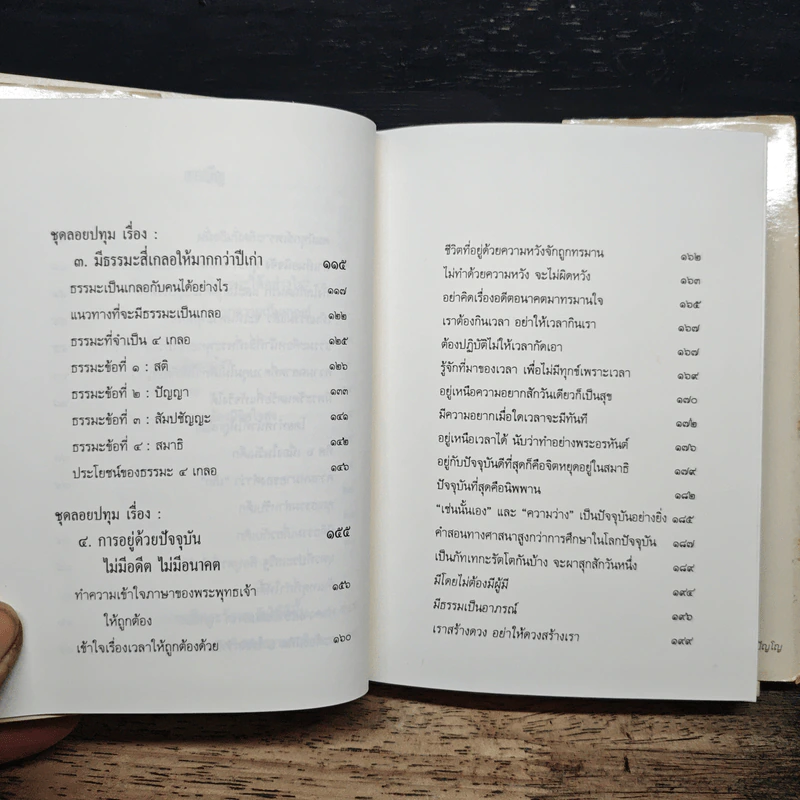 ชุดลอยปทุม เรื่อง :
๓. มีธรรมะสี่เกลอให้มากกว่าปีเก่า ๑๑๕
ธรรมะเป็นเกลอกับคนได้อย่างไร ๑๑๗
แนวทางที่จะมีธรรมะเป็นเกลอ ๑๒๒
ธรรมะที่จำเป็น ๔ เกลอ ๑๒๕
ธรรมะข้อที่ ๑ : สติ ๑๒๖
ธรรมะข้อที่ ๒ : ปัญญา ๑๓๓
ธรรมะข้อที่ ๓ : สัมปชัญญะ ๑๔๑
ธรรมะข้อที่ ๔ : สมาธิ ๑๔๒
ประโยชน์ของธรรมะ ๔ เกลอ ๑๔๖
ชุดลอยปทุม เรื่อง :
๔. การอยู่ด้วยปัจจุบัน ๑๕๕
ไม่มีอดีต ไม่มีอนาคต
ทำความเข้าใจภาษาของพระพุทธเจ้า ๑๕๖
ให้ถูกต้อง
เข้าใจเรื่องเวลาให้ถูกต้องด้วย ๑๖๐
ชีวิตที่อยู่ด้วยความหวังจักถูกทรมาน ๑๖๒
ไม่ทำด้วยความหวัง จะไม่ผิดหวัง ๑๖๓
อย่าคิดเรื่องอดีตอนาคตมาทรมานใจ ๑๖๕
เราต้องกินเวลา อย่าให้เวลากินเรา ๑๖๗
ต้องปฏิบัติไม่ให้เวลากัดเอา ๑๖๗
รู้จักที่มาของเวลา เพื่อไม่มีทุกข์เพราะเวลา ๑๖๙
อยู่เหนือความอยากสักวันเดียวก็เป็นสุข ๑๗๐
มีความอยากเมื่อใดเวลาจะมีทันที ๑๗๒
อยู่เหนือเวลาได้ นับว่าทำอย่างพระอรหันต์ ๑๗๖
อยู่กับปัจจุบันดีที่สุดก็คือจิตหยุดอยู่ในสมาธิ ๑๗๙
ปัจจุบันที่สุดคือนิพพาน ๑๘๒
“เช่นนั้นเอง” และ “ความว่าง” เป็นปัจจุบันอย่างยิ่ง ๑๘๕
คำสอนทางศาสนาสูงกว่าการศึกษาในโลกปัจจุบัน ๑๘๗
เป็นภัทเทกะรัตโตกันบ้าง จะผาสุกสักวันหนึ่ง ๑๘๙
มีโดยไม่ต้องมีผู้มี
มีธรรมเป็นอาภรณ์ ๑๙๖
เราสร้างดวง อย่าให้ดวงสร้างเรา ๑๙๙